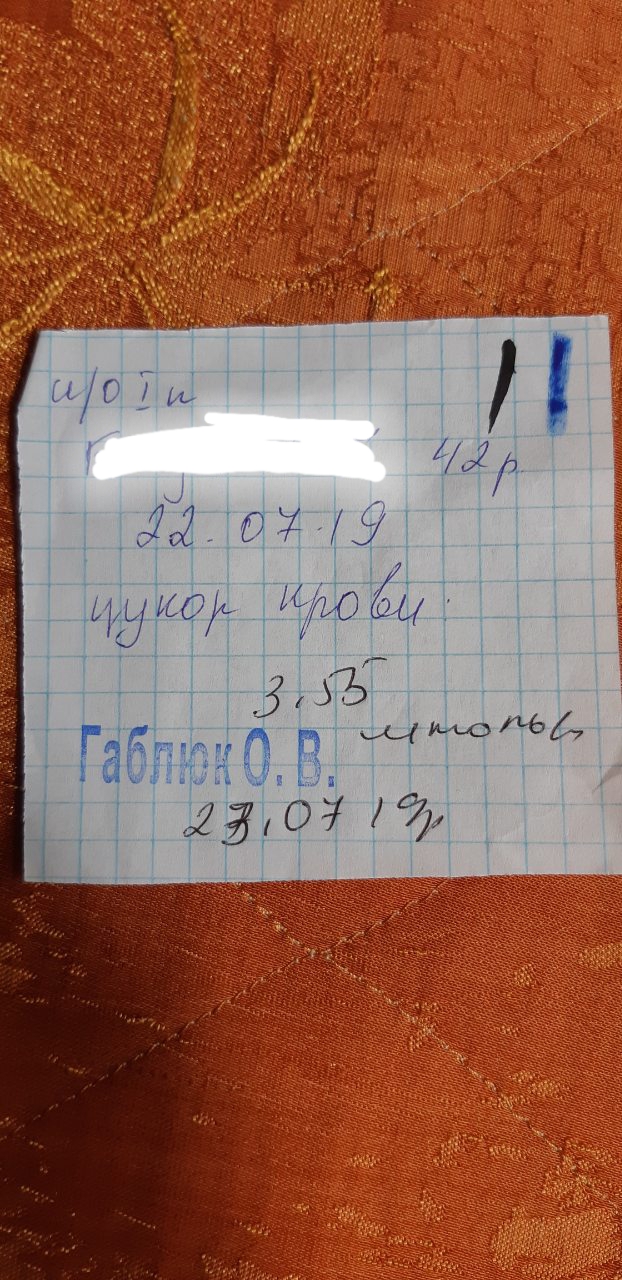 42 р.
22.07.19
цукор крови:
3,55
ммоль/л
Габлюк О. В.
23.07 19р